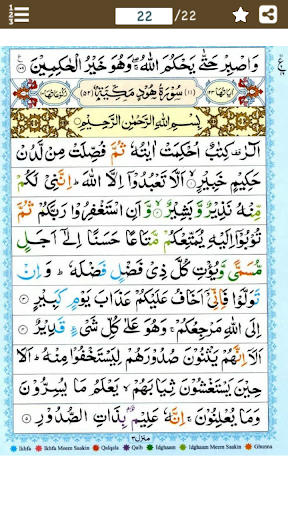 22 /22
وَاصْبِرْ حَتّٰى يَحْكُمَ اللّٰهُ ۚ وَهُوَ خَيْرُ الْحٰكِمِيْنَ
سُوْرَةُ هُوْدٍ مَّكِّيَّةٌ
بِسْمِ اللّٰهِ الرَّحْمٰنِ الرَّحِيْمِ
الٓرٰ ۚ كِتٰبٌ اُحْكِمَتْ اٰيٰتُهٗ ثُمَّ فُصِّلَتْ مِنْ لَّدُنْ
حَكِيْمٍ خَبِيْرٍ ۙ اَلَّا تَعْبُدُوْۤا اِلَّا اللّٰهَ ؕ اِنَّنِيْ لَكُمْ
مِّنْهُ نَذِيْرٌ وَّبَشِيْرٌ ۙ وَّاَنِ اسْتَغْفِرُوْا رَبَّكُمْ ثُمَّ
تُوْبُوْۤا اِلَيْهِ يُمَتِّعْكُمْ مَّتَاعًا حَسَنًا اِلٰۤى اَجَلٍ
مُّسَمًّى وَّيُؤْتِ كُلَّ ذِيْ فَضْلٍ فَضْلَهٗ ؕ وَاِنْ
تَوَلَّوْا فَاِنِّيْۤ اَخَافُ عَلَيْكُمْ عَذَابَ يَوْمٍ كَبِيْرٍ
اِلَى اللّٰهِ مَرْجِعُكُمْ ۚ وَهُوَ عَلٰى كُلِّ شَيْءٍ قَدِيْرٌ
اَلَاۤ اِنَّهُمْ يَثْنُوْنَ صُدُوْرَهُمْ لِيَسْتَخْفُوْا مِنْهُ ؕ اَلَا
حِيْنَ يَسْتَغْشُوْنَ ثِيَابَهُمْ ۙ يَعْلَمُ مَا يُسِرُّوْنَ
وَمَا يُعْلِنُوْنَ ۚ اِنَّهٗ عَلِيْمٌۢ بِذَاتِ الصُّدُوْرِ
منزل ٣
Ikhfa Ikhfa Meem Saakin Qalqala Qalb Idghaam Idghaam Meem Saakin Ghunna